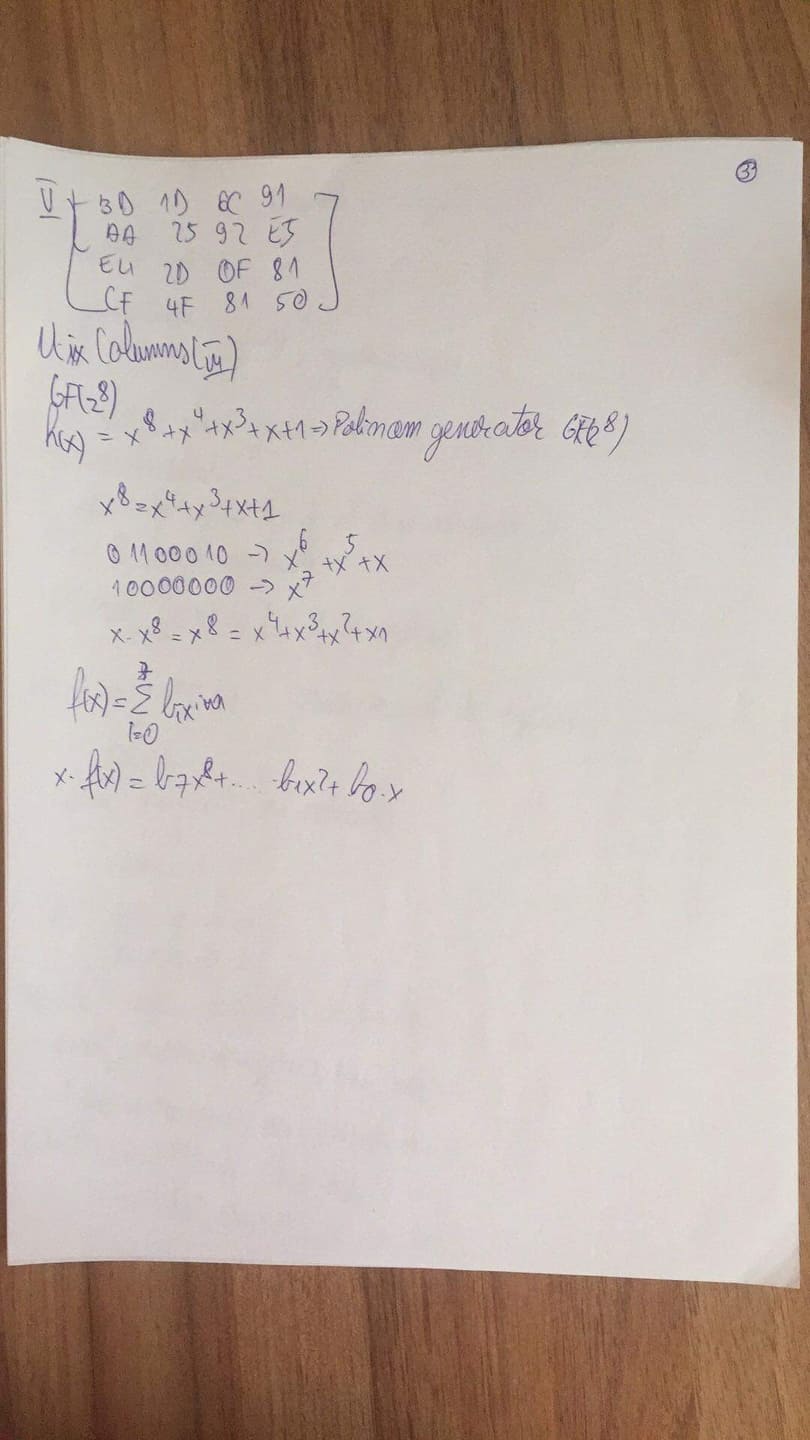 ③
V 3D 1D EC 91
AA 25 92 E5
E4 2D 0F 81
CF 4F 81 50
Mix Columns(VI)
GF(2^8)
h(x) = x^8+x^4+x^3+x+1 => Polinom generator GF(2^8)
x^8=x^4+x^3+x+1
01100010 -> x^6+x^5+x
10000000 -> x^7
x· x^8 = x^8 = x^4+x^3+x^2+x1
f(x)=Σ
i=0
x· f(x) = b7x^8+.... b1x^2+ b0·x